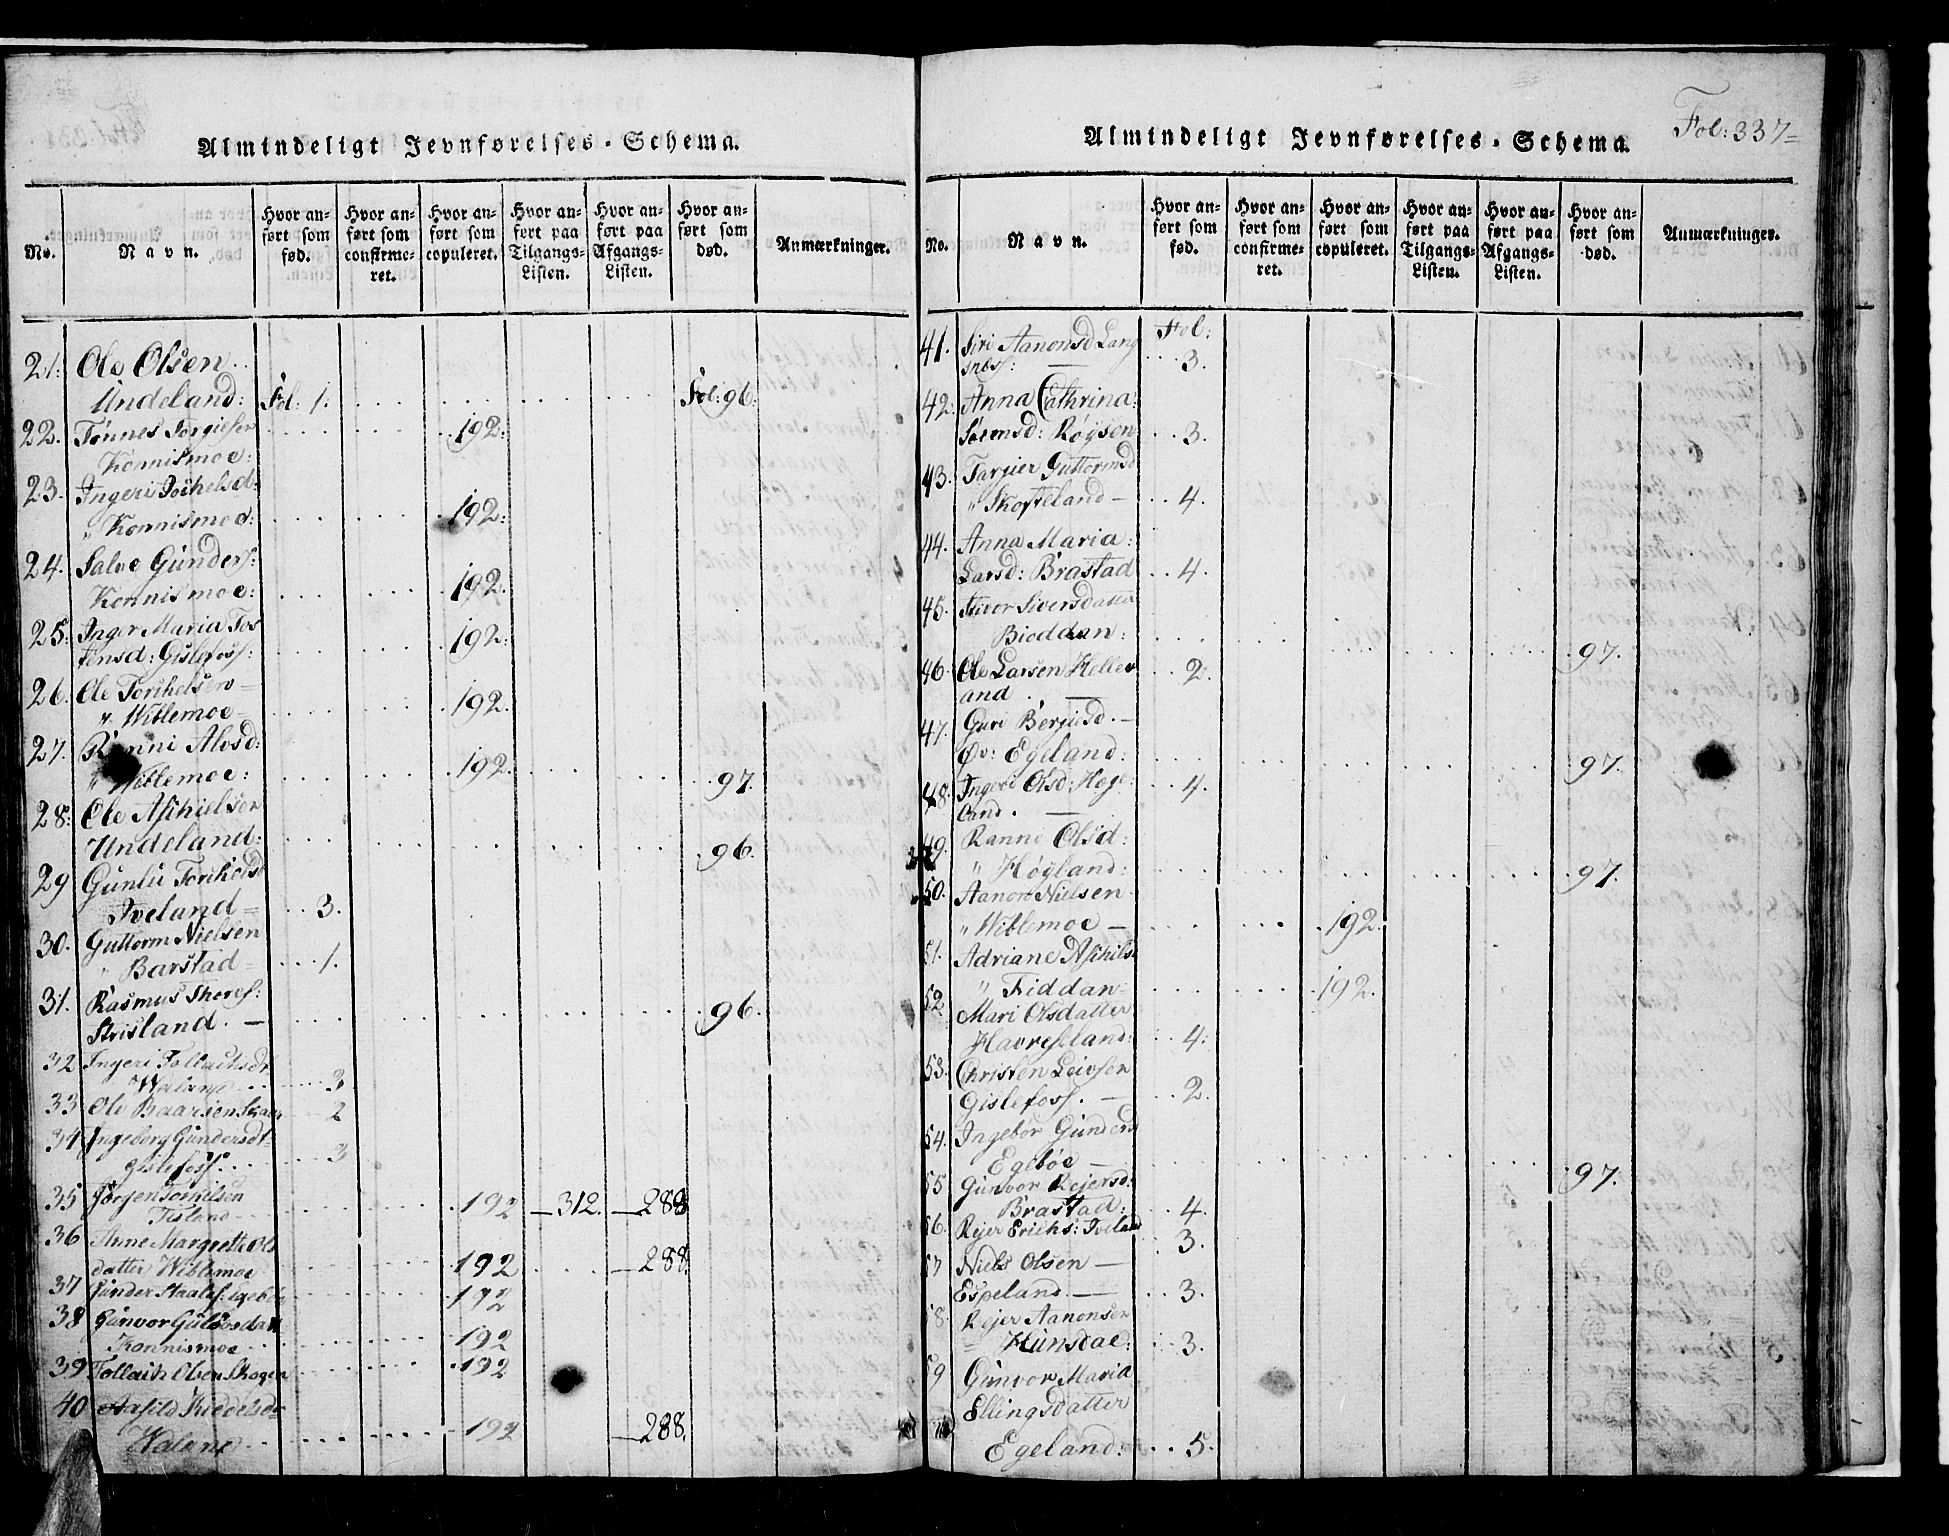 Almindeligt Jevnførelses-Schema.
No.
Navn.
Hvor anført som fød.
Hvor anført som confirmeret.
Hvor anført som copuleret.
Hvor anført paa Tilgangs-Listen.
Hvor anført paa Afgangs-Listen.
Hvor anført som død.
Anmærkninger.
21. Ole Olsen
Undeland: Fol: 1. Fol: 96.
22. Tønnes Torgiesen 192.
Konnismoe:
23. Ingeri Jochelsd:
" Konnismoe: 192.
24. Salve Gunders:
Konnismoe: 192.
25. Inger Maria Tos
tensd: Gislefoss: 192.
26. Ole Torkelsen
" Wiblemoe 192.
27. Ranni Alvsd:
" Wiblemoe: 192. 97.
28. Ole Aschielsen
Undeland: 96.
29 Gunlu
Iveland 3.
30. Guttorm Nielsen
" Barstad 1.
31. Rasmus
Strisland. 96.
32 Ingeri Tollachsdr
Walane 3
33 Ole Baarsen 2
34 Ingeborg Gundersdt 3
Gislefoss
35 Jørgen
192 312. 288
36 Anne Margreth Ols
datter Wiblemoe 192 288.
37 Gunder 192
38 Gunvor
Konnismoe 192
39 Tollach Olsen Skogen 192
40
Walane 192 288.
Almindeligt Jevnførelses-Schema.
Fol: 337
No.
Navn.
Hvor anført som fød.
Hvor anført som confirmeret.
Hvor anført som copuleret.
Hvor anført paa Tilgangs-Listen.
Hvor anført paa Afgangs-Listen.
Hvor anført som død.
Anmærkninger.
41. Siri Aanonsd Lang Fol:
3.
42. Anna Cathrina
Sørensd: Røysen 3.
43. Targier Guttormsd
" Skofteland 4.
44. Anna Maria
Larsd: Brastad 4.
45. Siversdatter
Bioddan: 97.
46. Ole Larsen Helle 2.
land
47. Guri Bergusd.
Øv: Egeland: 97.
48. Ingeri Olsd: Høge 4.
land.
49. Ranni Olsd:
" Høgland: 97.
50. Aanon Nielsen
" Wiblemoe 192.
51. Adriane Aschils
" Fiddan 192.
52. Mari Olsdatter
Havreseland: 4.
53. Christen Leivsen
Gislefoss. 2.
54. Ingebor Gunders
Egeboe 97.
55 Gunvor Rejersd:
Brastad: 4.
56. Rejer Erichs: Iveland 3.
57 Niels Olsen
Espeland 3.
58. Rejer Aanonsen
Hunsdae: 3.
59 Gunvor Maria
Ellingsdatter
Egeland: 5.